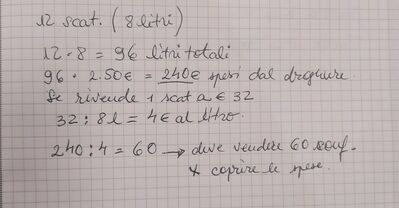 12 scat. (8 litri)
12 · 8 = 96 litri totali
96 · 2.50€ = 240€ spesi dal droghiere.
Se rivende 1 scat a € 32
32 : 8l = 4€ al litro.
240 : 4 = 60 → deve vendere 60
x coprire le spese.